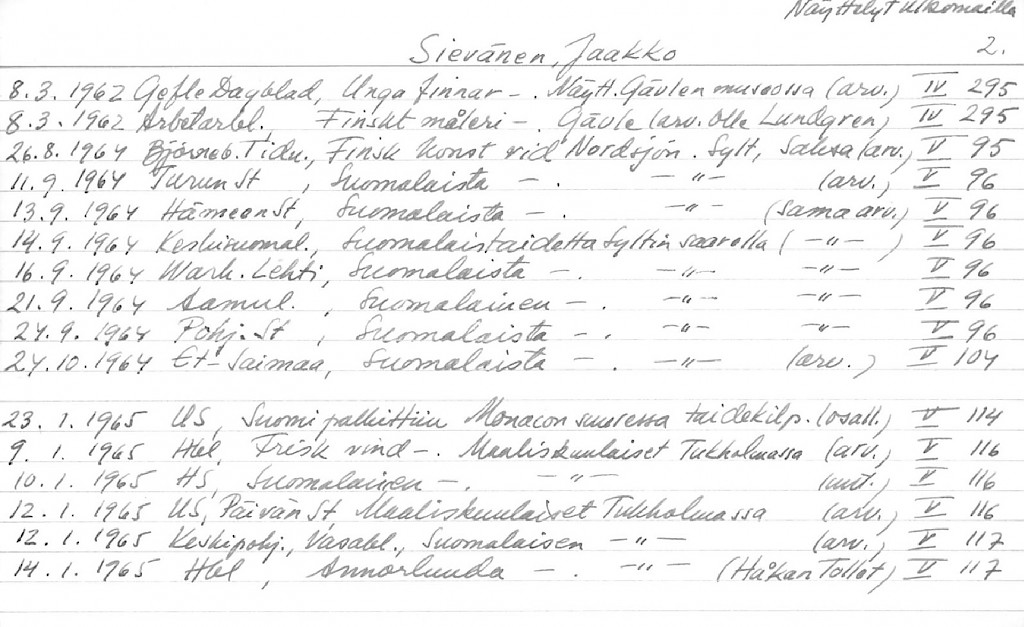 Näyttelyt ulkomailla
Sievänen, Jaakko 2.
8.3. 1962 Gefle Dagblad, Unga finnar -. Näytt. Gävlen museossa (arv.) IV 295
8.3. 1962 Arbetarbl., Finskt måleri -. Gävle (arv. Olle Lundgren) IV 295
26.8. 1964 Björneb. Tidn., Finsk konst vid Nordsjön. Sylt, Saksa (arv.) V 95
11.9. 1964 Turun St, Suomalaista -. -"- (arv.) V 96
13.9. 1964 Hämeen St, Suomalaista -. -"- (sama arv.) V 96
14.9. 1964 Keskisuomal., Suomalaistaidetta Syltin saarella ( -"- ) V 96
16.9. 1964 Wark. Lehti, Suomalaista -. -"- -"- V 96
21.9. 1964 Aamul., Suomalainen -. -"- -"- V 96
24.9. 1964 Pohj. St, Suomalaista -. -"- -"- V 96
24.10. 1964 Et-Saimaa, Suomalaista - -"- (arv.) V 104
23. 1. 1965 US, Suomi palkittiin Monacon suuressa taidekilp. (osall.) V 114
9. 1. 1965 Hbl, Frisk vind -. Maaliskuulaiset Tukholmassa (arv.) V 116
10.1. 1965 HS, Suomalainen -. -"- (uut.) V 116
12. 1. 1965 US, Päivän St, Maaliskuulaiset Tukholmassa (arv.) V 116
12. 1. 1965 Keskipohj., Vasabl., Suomalaisen -"- (arv.) V 117
14. 1. 1965 Hbl, Annorlunda -. -"- (Håkan Tollet) V 117